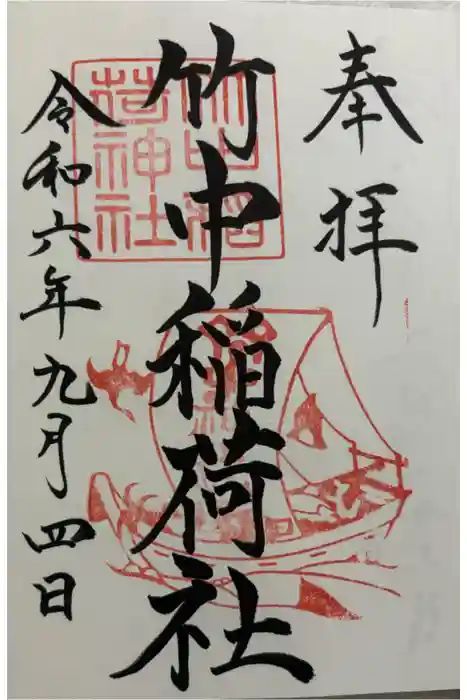 奉拝
竹中稲荷社
竹中稲
荷神社
令和六年九月四日